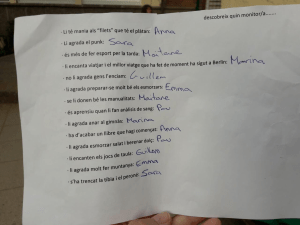 descobreix quin monitor/a......
-Li té mania als "filets" que té el plàtan: Anna
-Li agrada el punk: Sara
-és més de fer esport per la tarda: Maitane
-li encanta viatjar i el millor viatge que ha fet de moment ha sigut a Berlin: Marina
-no li agrada gens l'enciam: Guillem
-li agrada preparar-se molt bé els esmorzars: Emma
-se li donen bé les manualitats: Maitane
-és aprensiu quan li fan anàlisis de sang: Pau
-li agrada anar al gimnàs: Marina
-ha d'acabar un llibre que hagi començat: Anna
-li agrada esmorzar salat i berenar dolç: Pau
-li encanten els jocs de taula: Guillem
-li agrada molt fer muntanya: Emma
-s'ha trencat la tíbia i el peroné: Sara